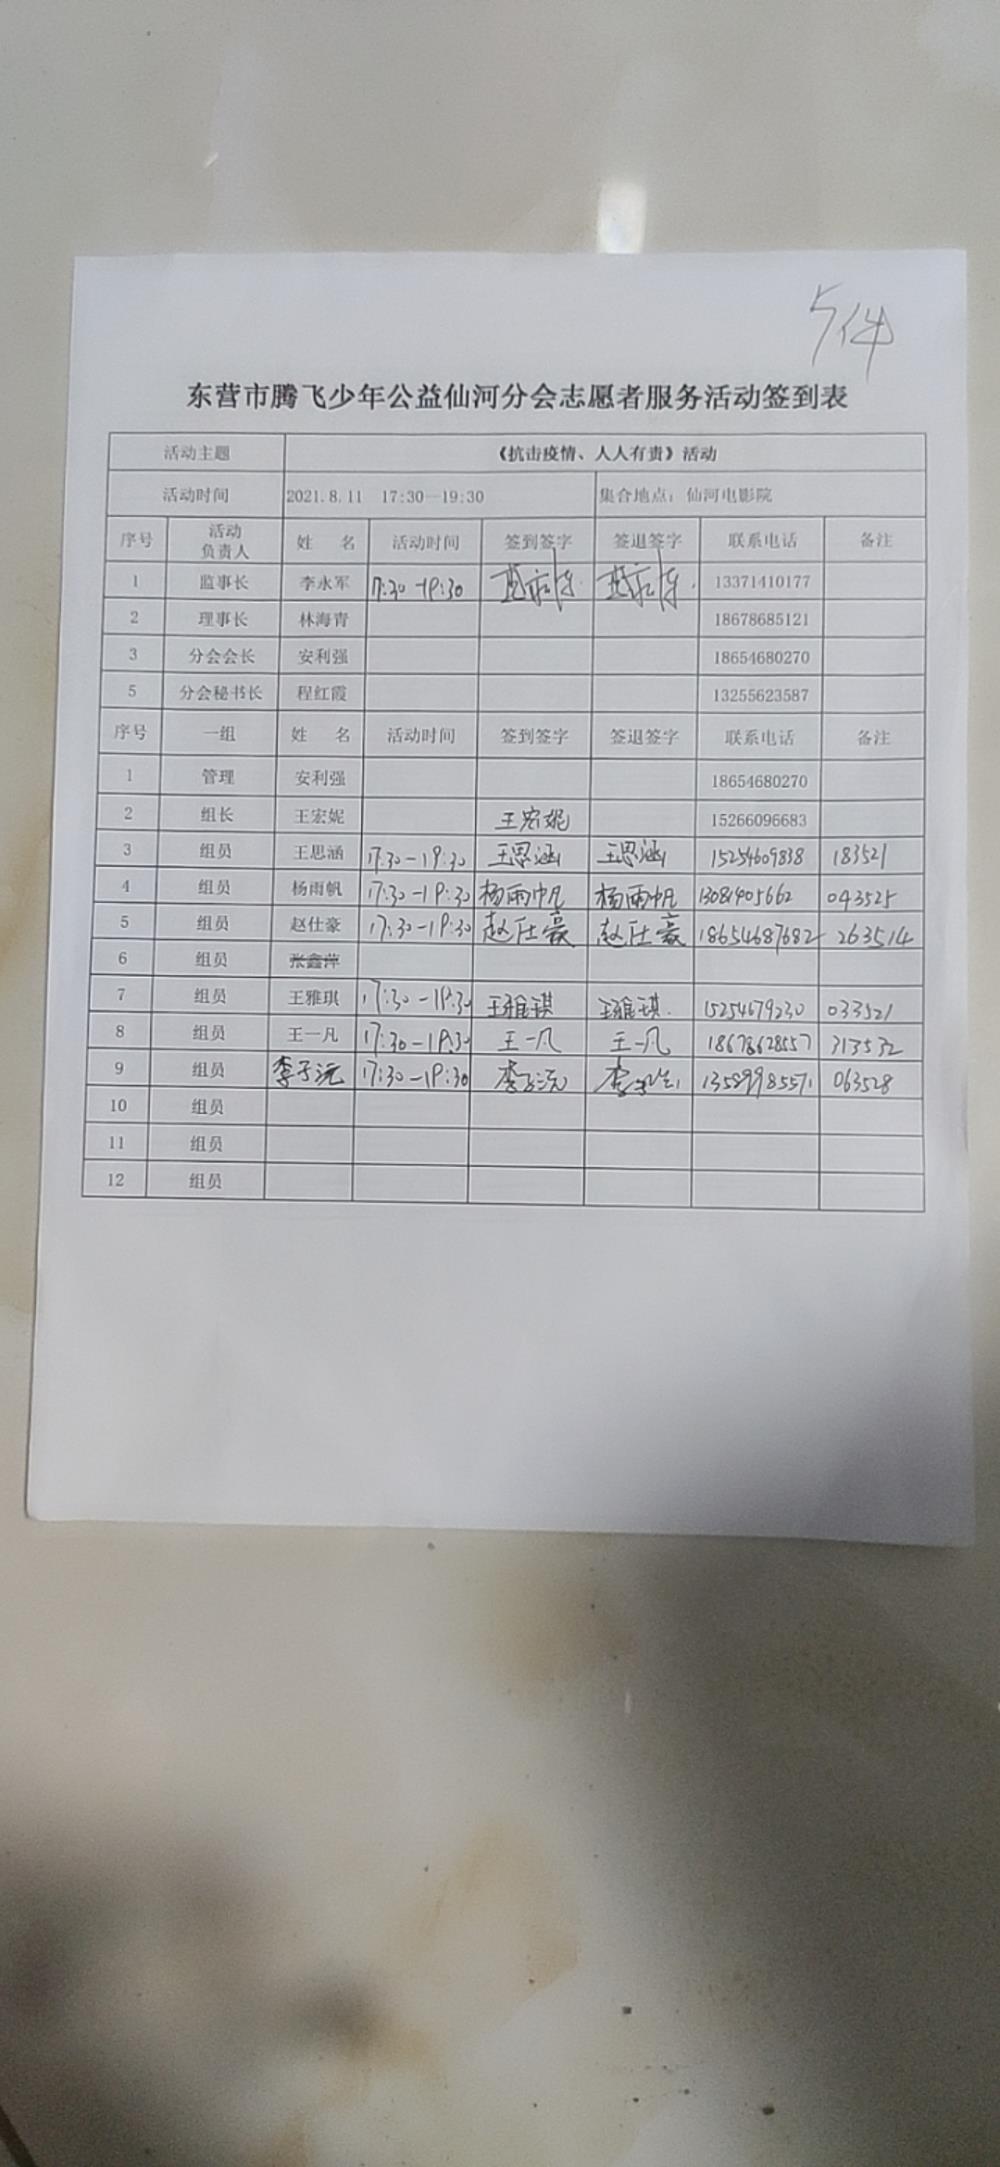 5件
东营市腾飞少年公益仙河分会志愿者服务活动签到表
活动主题 《抗击疫情、人人有责》活动
活动时间 2021.8.11 17:30—19:30 集合地点：仙河电影院
序号 活动负责人 姓 名 活动时间 签到签字 签退签字 联系电话 备注
1 监事长 李永军 17:30-19:30 13371410177
2 理事长 林海青 18678685121
3 分会会长 安利强 18654680270
5 分会秘书长 程红霞 13255623587
序号 一组 姓 名 活动时间 签到签字 签退签字 联系电话 备注
1 管理 安利强 18654680270
2 组长 王宏妮 王宏妮 15266096683
3 组员 王思涵 17:30-19:30 王思涵 王思涵 15254609838 183521
4 组员 杨雨帆 17:30-19:30 杨雨帆 杨雨帆 13081405662 043525
5 组员 赵仕豪 17:30-19:30 赵仕豪 赵仕豪 18654687682 263514
6 组员 张鑫萍
7 组员 王雅琪 17:30-19:30 王雅琪 王雅琪. 15254679230 033521
8 组员 王一凡 17:30-19:30 王一凡 王一凡 18678628557 313532
9 组员 李子沅 17:30-19:30 李子沅 13589985571 063528
10 组员
11 组员
12 组员